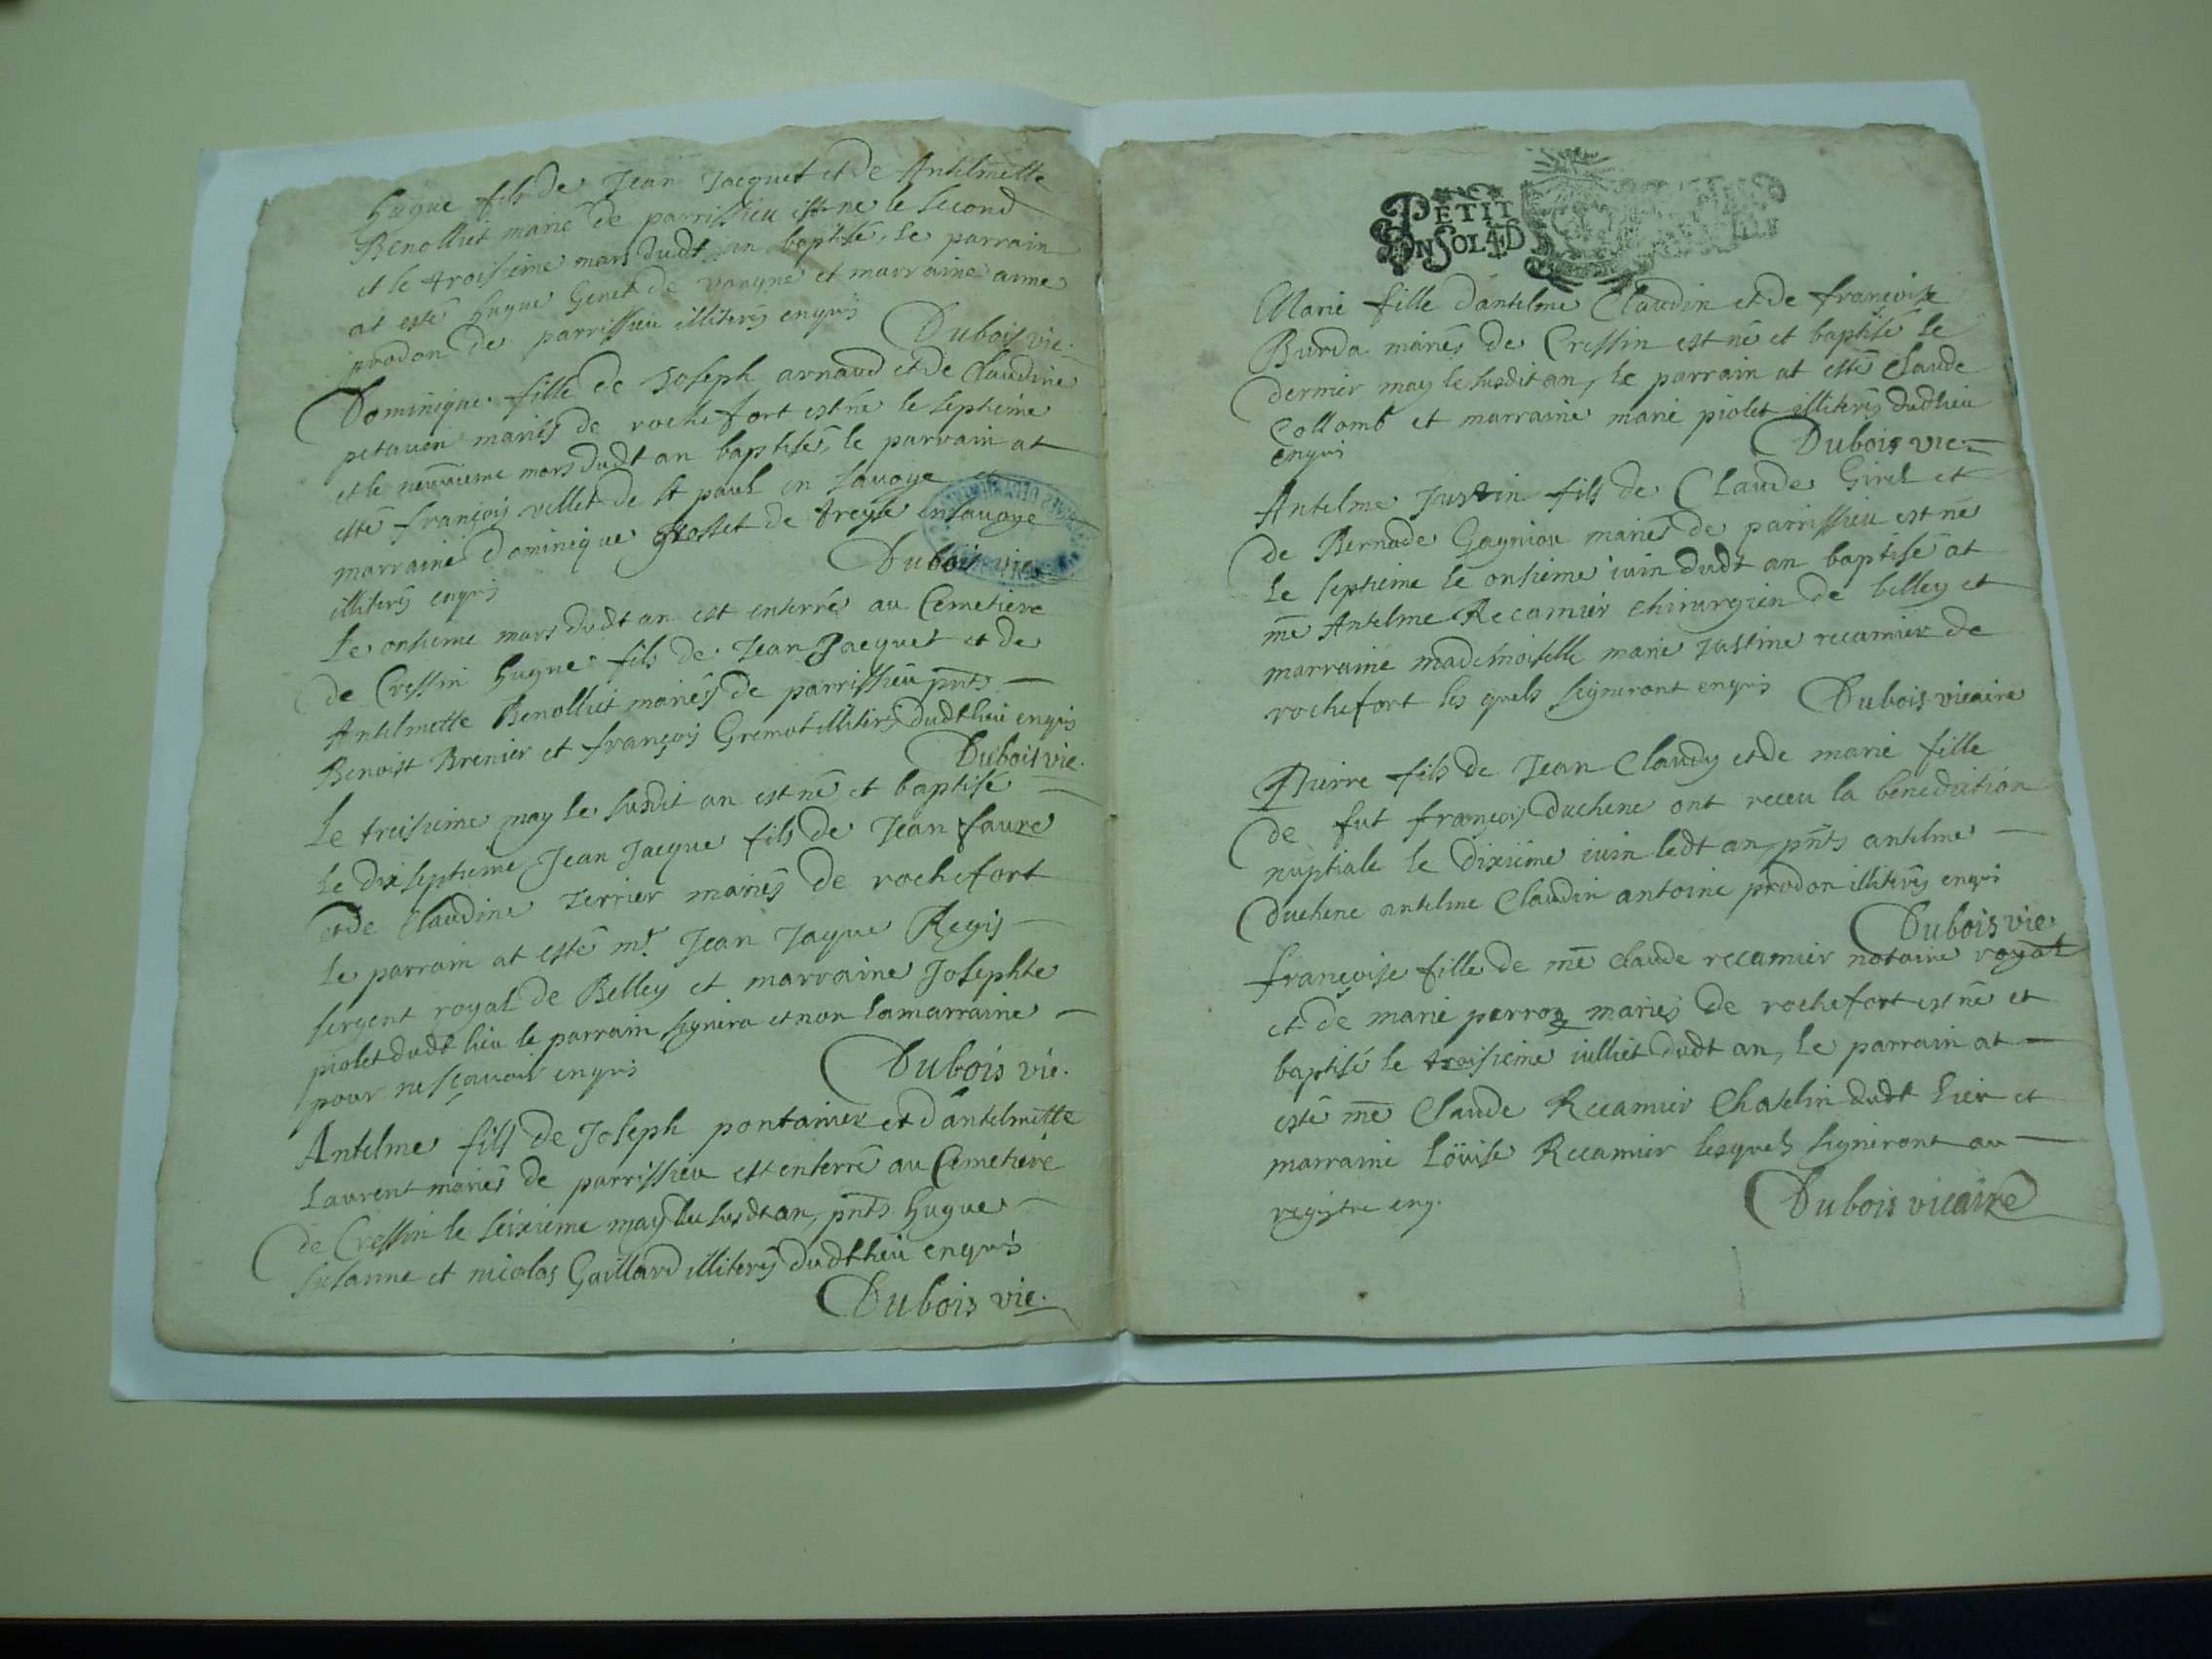 hugue fils de Jean Jacquet et de Antelmette
Benolliet marié de parrissieu est né le second
et le troisieme mars dudt an baptisé, le parrain
at esté hugue Genet de vongne et marraine anne
prodon de parrissieu illiterés enquis
Dubois vic.
Dominique fille de Joseph arnaud et de Claudine
petaven mariés de rochefort est né le septieme
et le neuvieme mars dudt an baptisée, le parrain at
esté françois vellet de st paul en savoye et
marraine dominique grosset de treyse en savoye
illiterés enquis
Dubois vic.
Le onsieme mars dudt an est enterré au Cemetiere
de Cressin hugue fils de Jean Jacquet et de
Antelmette Benolliet mariés de parrissieu pnts
Benoist Brenier et françois Gremot illiterés dudt lieu enquis
Dubois vic.
Le treisieme may le susdit an est né et baptisé
le dixseptieme Jean Jacque fils de Jean faure
et de Claudine terrier mariés de rochefort
le parrain at esté mr. Jean Jaque Regis
sergent royal de Belley et marraine Josephte
piolet dudt lieu le parrain signera et non la marraine
pour ne sçavoir enquis
Dubois vic.
Antelme fils de Joseph pontanier et d'antelmette
Laurent mariés de parrissieu est enterré au Cemetiere
de Cressin le seixieme may le susdt an, pnts hugue
susanne et nicolas Gaillard illiterés dudt lieu enquis
Dubois vic.
PETIT
EN SOL 4 D
Marie fille d'antelme Claudin et de françoise
Burda mariés de Cressin est né et baptisé le
dernier may le susdit an, le parrain at esté Claude
Collomb et marraine marie piolet illiterés dudt lieu
enquis
Dubois vic.
Antelme Justin fils de Claude Girel et
de Bernade Gagniou mariés de parrissieu est né
le septieme le onsieme iuin dudt an baptisé at
me Antelme Recamier chirurgien de belley et
marraine mademoiselle marie Justine recamier de
rochefort les quels signeront enquis
Dubois vicaire
Pierre fils de Jean Claudy et de marie fille
de fut françois duchene ont receu la benediction
nuptiale le dixieme iuin ledt an, pnts antelme
duchene antelme Claudin antoine prodon illiterés enquis
Dubois vic.
françoise fille de me claude recamier notaire royal
et de marie perroz mariés de rochefort est né et
baptisé le troisieme iulliet dudt an, le parrain at
esté me Claude Recamier Chatelin dudt lieu et
marraine Loüise Recamier lesquels signeront au
registre enq.
Dubois vicaire